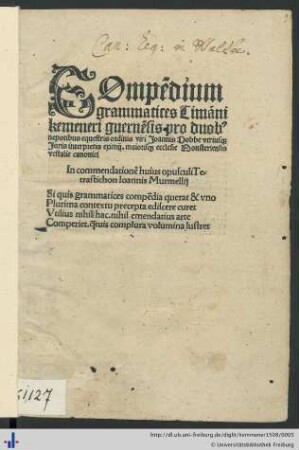 COmpẽdium
grammatices Timãni
kemeneri guernẽsis pro duobꝰ
nepotibus equestris ordinis viri Joannis
Juris interpretis maiorisqʒ ecclesie Monasteriensis
canonici
In commendationẽ huius opusculi Te-
trastichon Ioannis Murmellij
Si quis grammatices compẽdia querat & vno
Plurima contextu precepta ediscere curet
Utilius nihil hac, nihil emendatius arte
Comperiet, quis complura volumina lustret
1127
http://dl.ub.uni-freiburg.de/diglit/kemmener1508/0005
© Universitätsbibliothek Freiburg